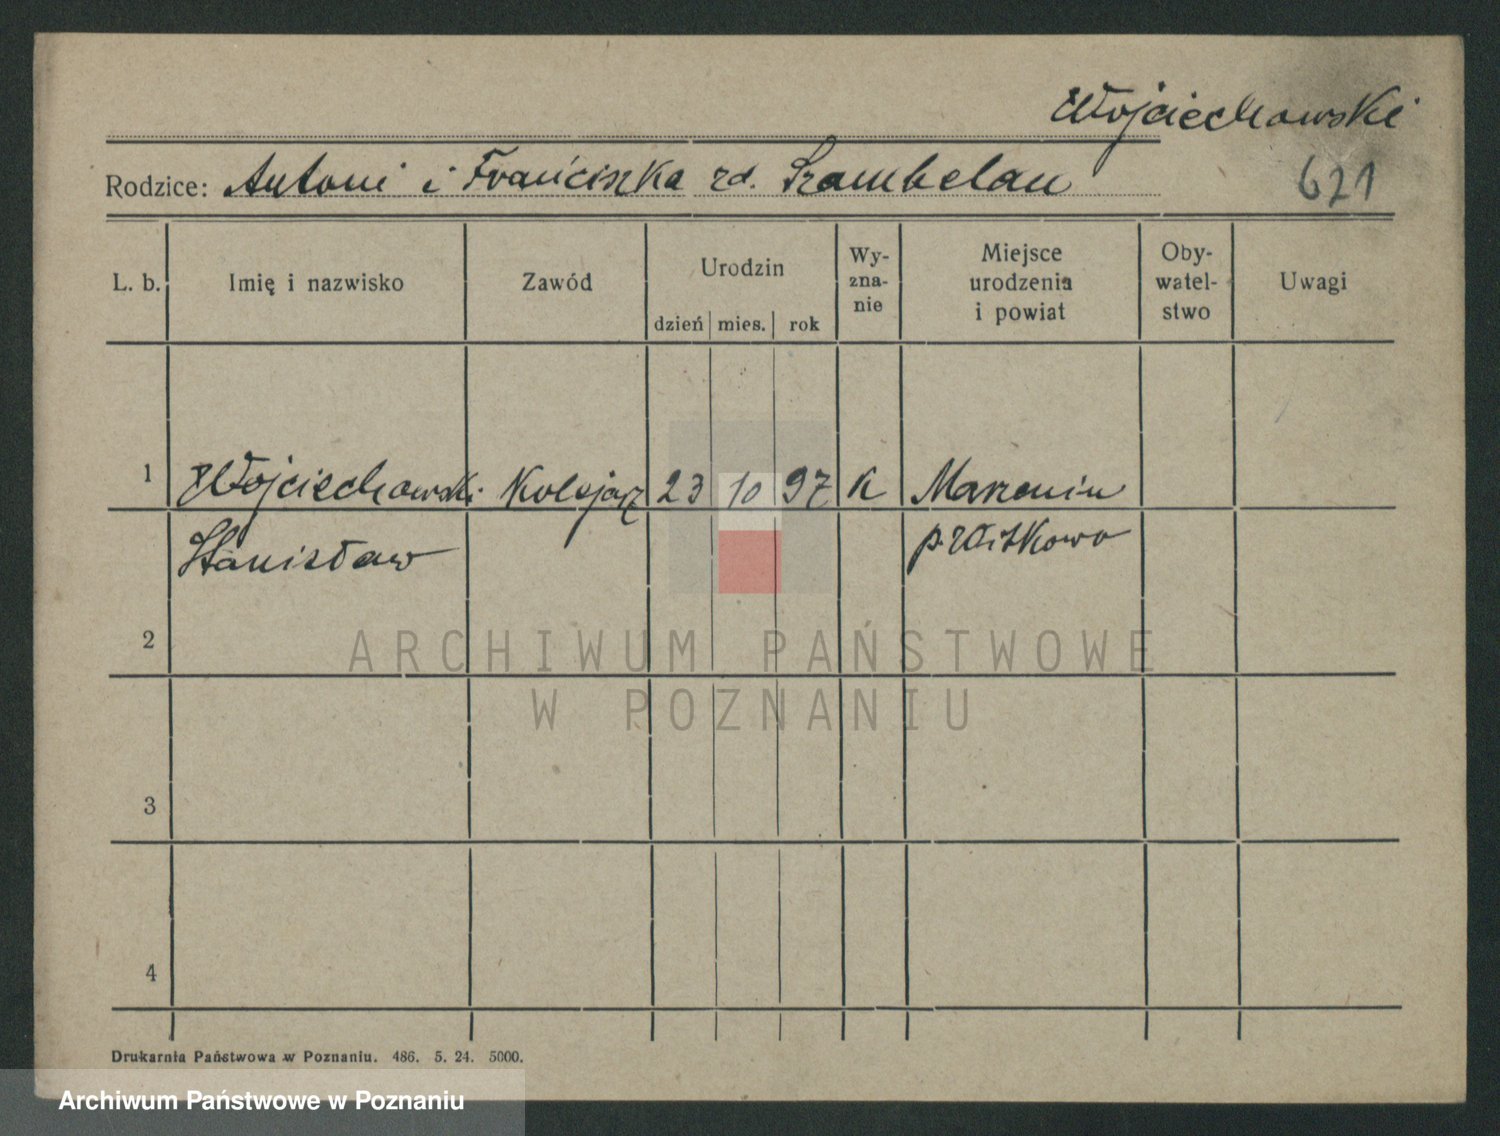 Wojciechowski
Rodzice: Antoni i Franciszka zd. Szambelan 621
L. b. Imię i nazwisko Zawód Urodzin dzień mies. rok Wy-zna-nie Miejsce urodzenia i powiat Oby-watel-stwo Uwagi
1 Wojciechowski Kolejarz 23 10 97 k Marzenin
Stanisław p. Witkowo
2
ARCHIWUM PAŃSTWOWE
W POZNANIU
3
4
Drukarnia Państwowa w Poznaniu. 486. 5. 24. 5000.
Archiwum Państwowe w Poznaniu